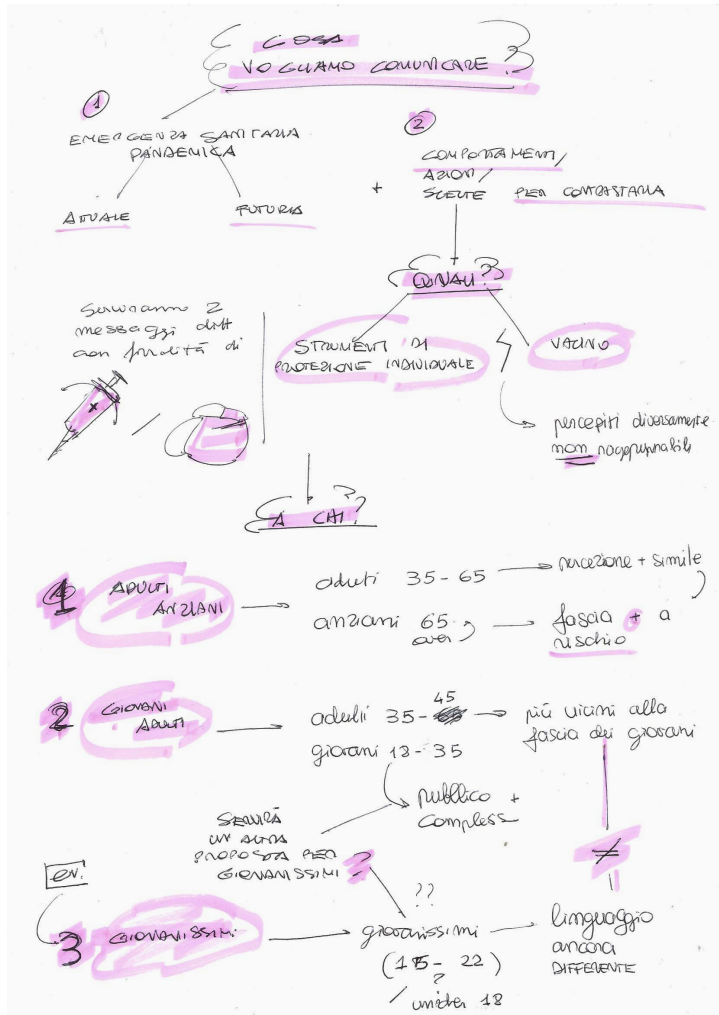 COSA
VOGLIAMO COMUNICARE?
1
EMERGENZA SANITARIA
PANDEMICA
ATTUALE
FUTURIA
2
COMPORTAMENTI/
AZIONI/
+ SCELTE PER CONTRASTARLA
QUALI?
Serviranno 2
messaggi diff
con finalità di
/
STRUMENTI DI
PROTEZIONE INDIVIDUALE
VACINO
percepiti diversamente
non raggruppabili
A CHI?
1 ADULTI
ANZIANI
adulti 35-65
percezione + simile
anziani 65
over
fascia + a
rischio
2 GIOVANI
ADULTI
45
adulti 35-
più vicini alla
fascia dei giovani
giovani 18-35
pubblico +
compless
SERVIRÀ
UN'ALTRA
PROPOSTA PER
GIOVANISSIMI ?
≠
ev.
3 GIOVANISSIMI
??
giovanissimi
(15-22)
?
/ under 18
linguaggio
ancora
DIFFERENTE